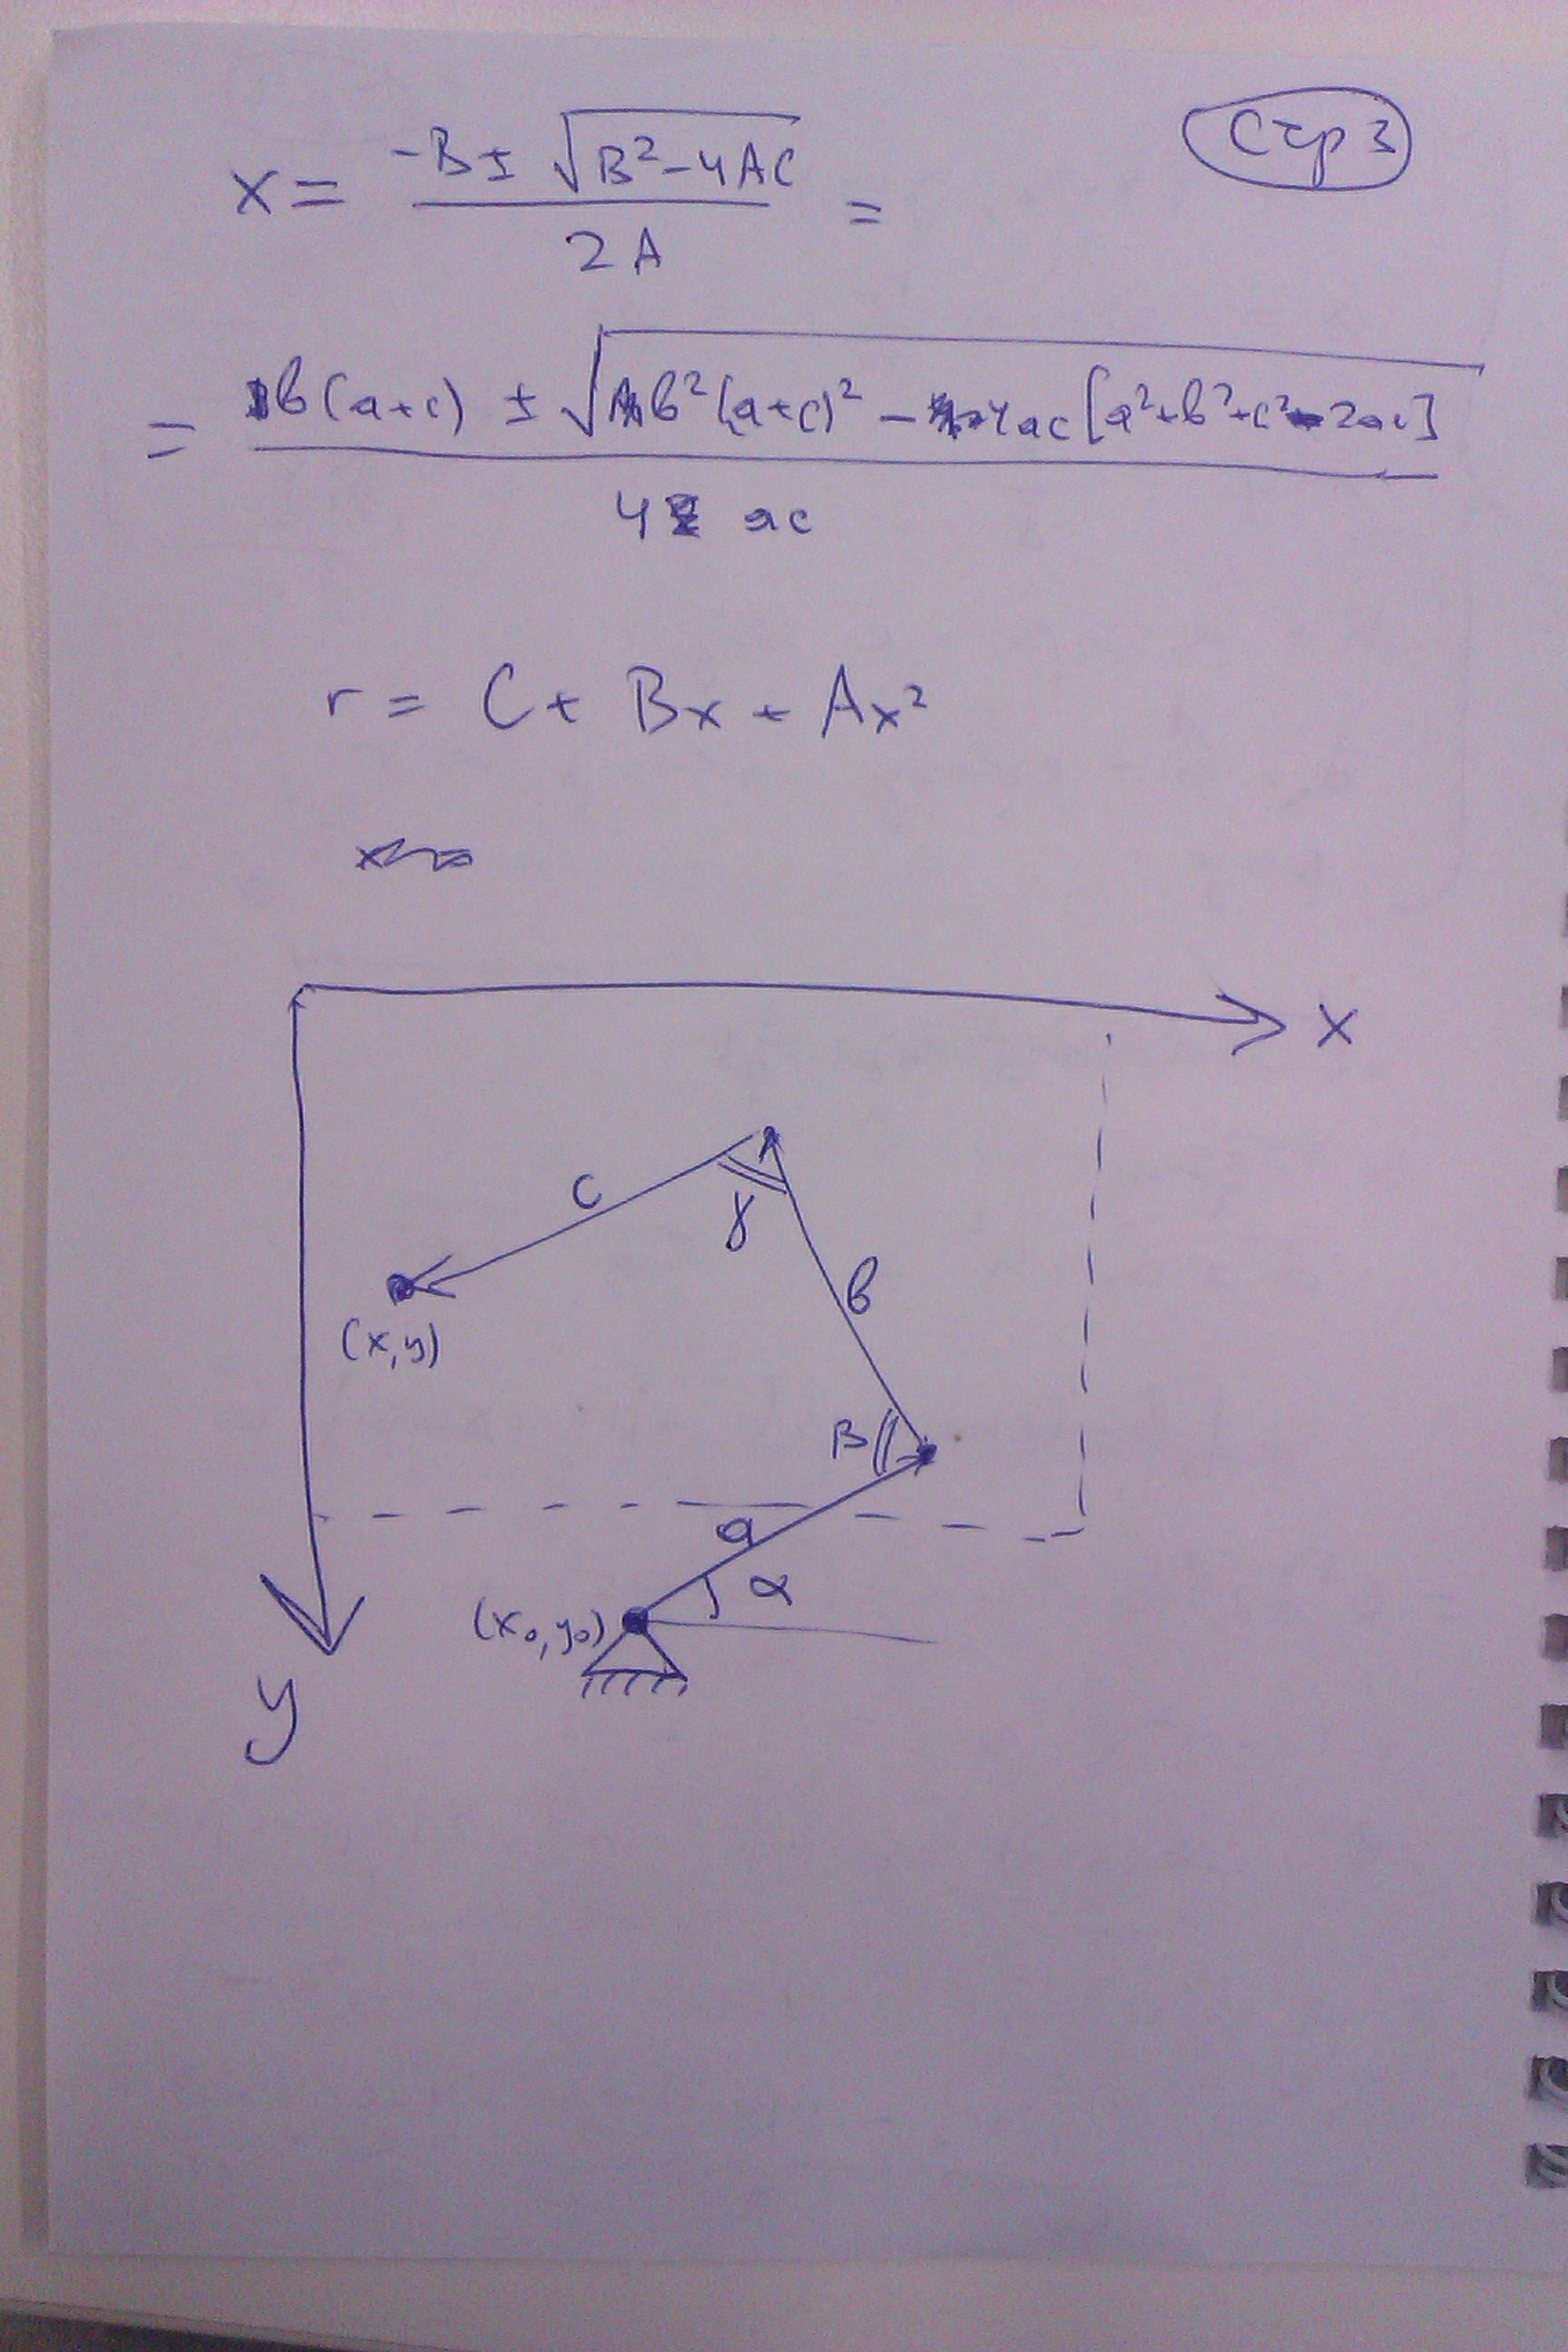 Стр 3
x = (-B ± √(B² - 4AC)) / 2A =
= (в(a+c) ± √(в²(a+c)² - 4ac[a²+в²+c²-2ac])) / 4ac
r = C + Bx + Ax²
x
c
γ
в
(x,y)
β
a
α
(x₀,y₀)
y